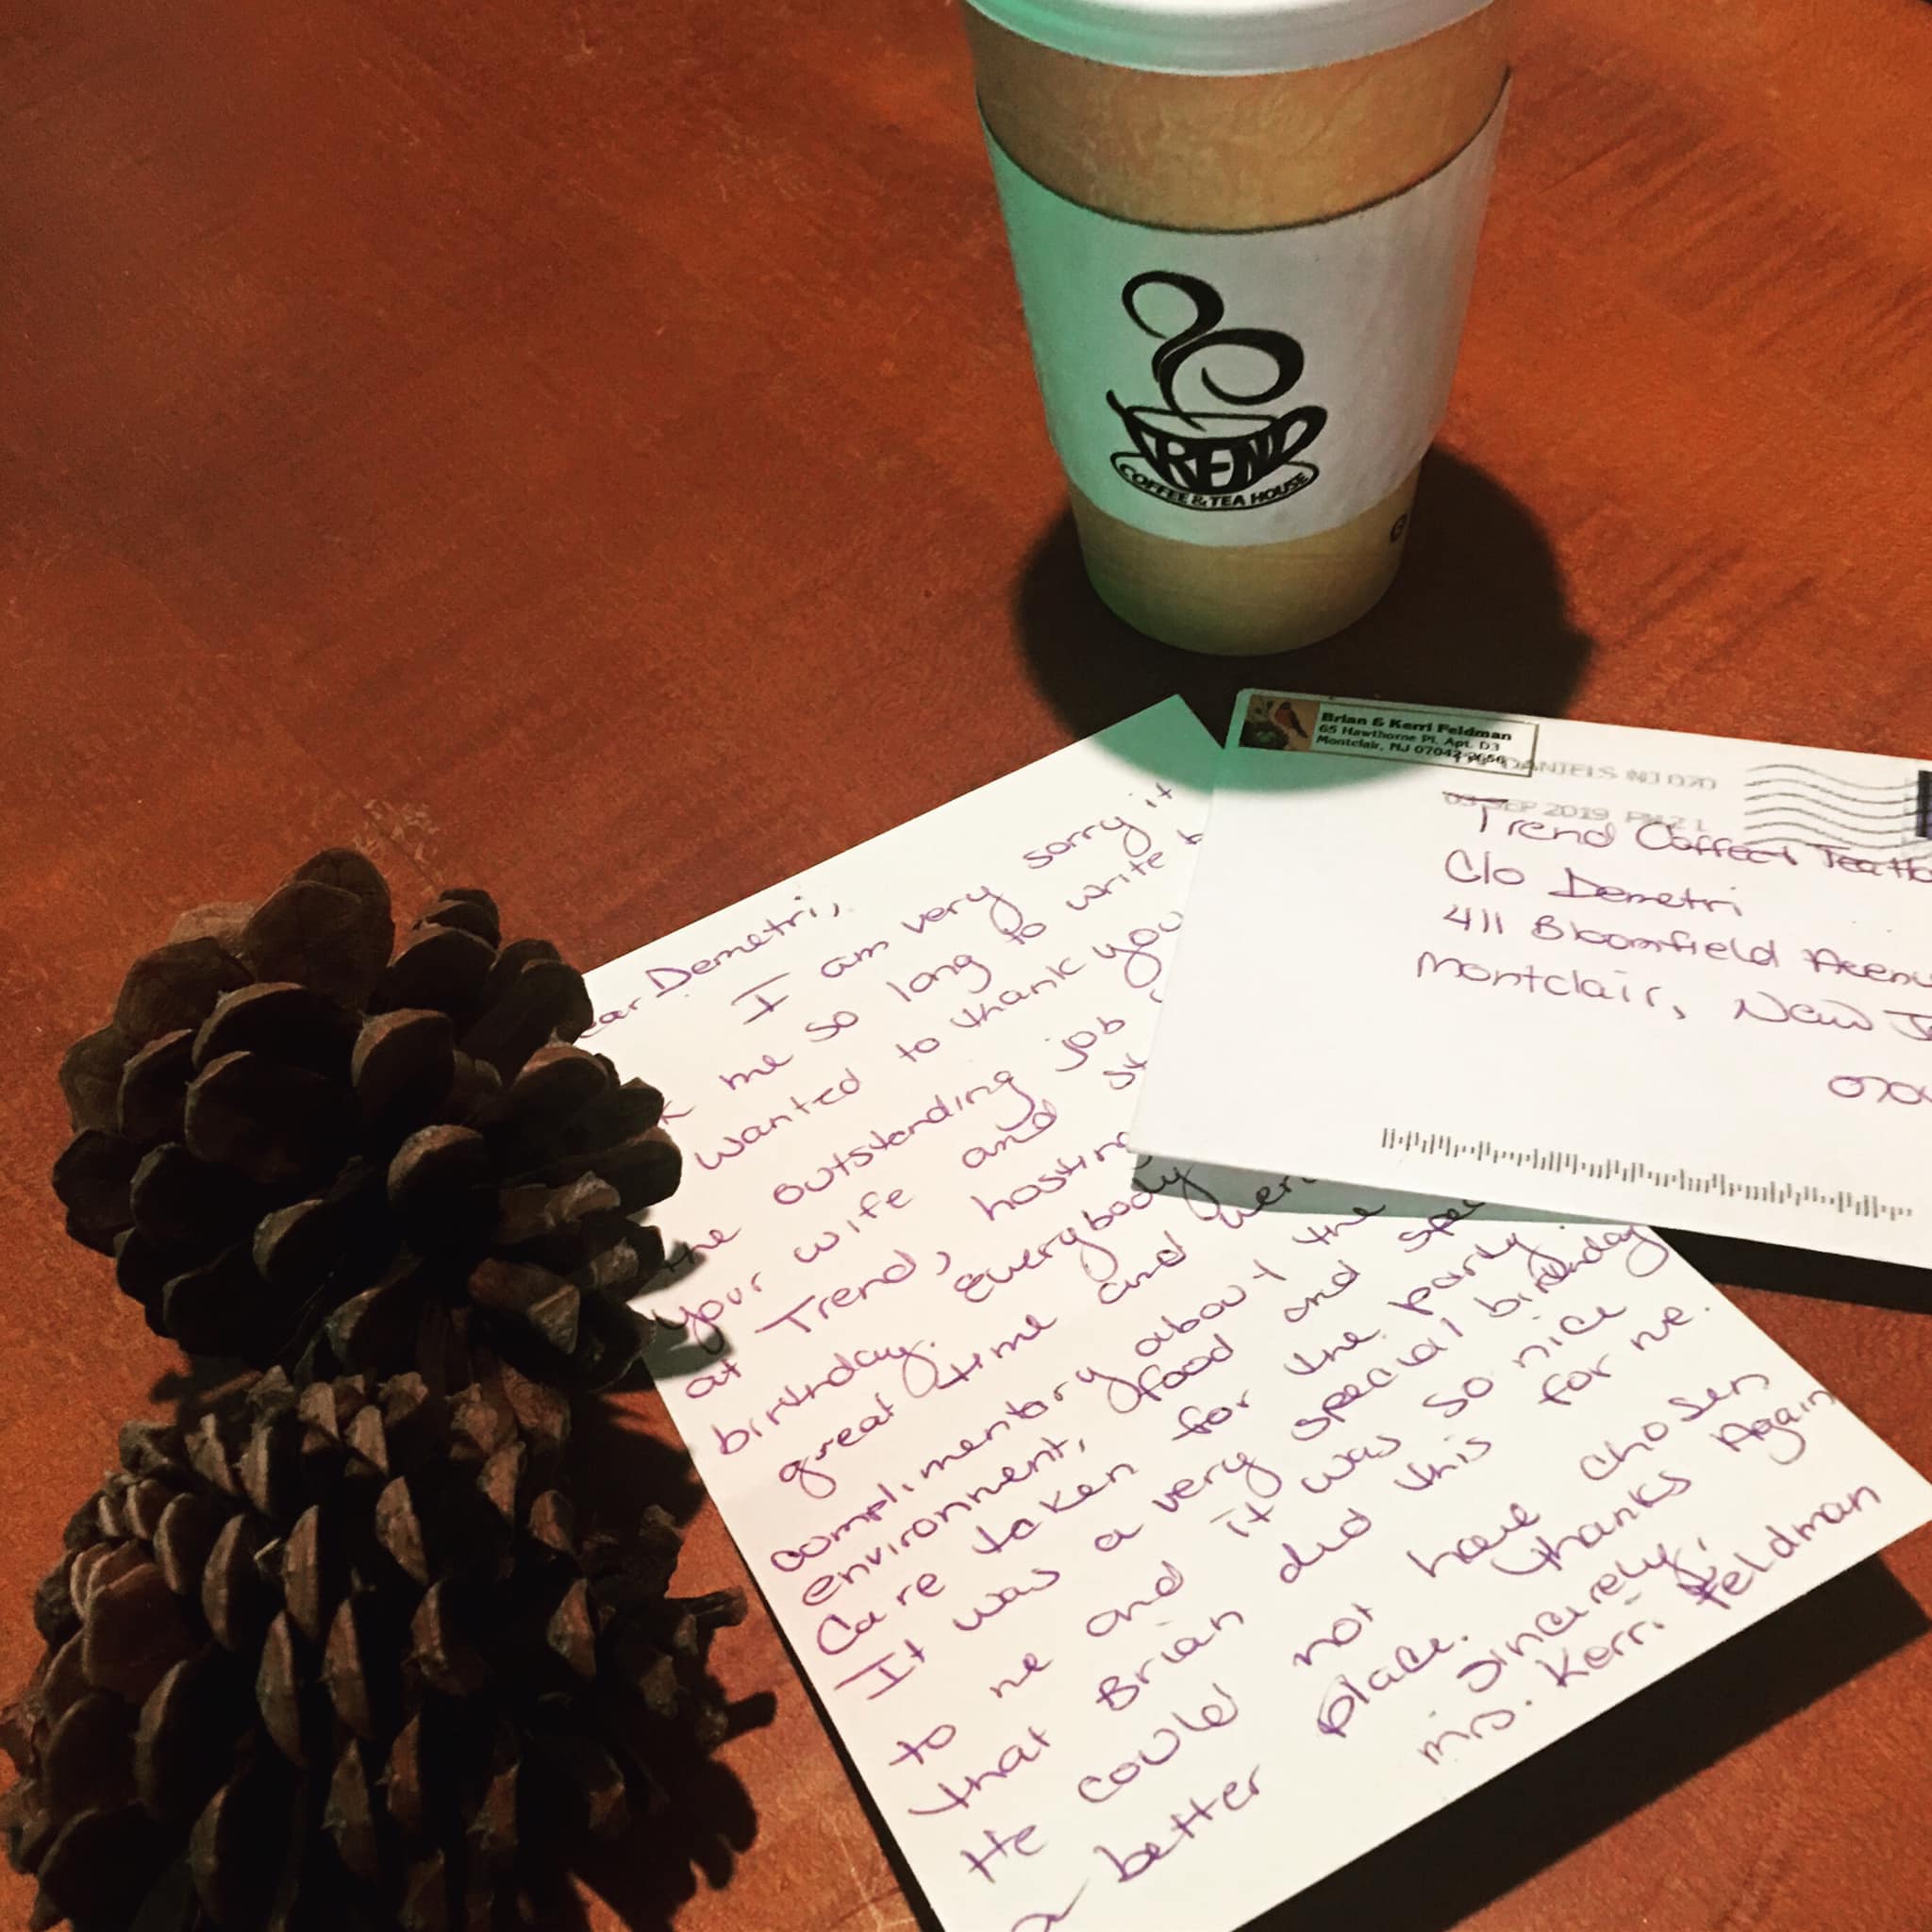 TREND
COFFEE & TEA HOUSE
Brian & Kerri Feldman
65 Hawthorne Pl. Apt. D3
Montclair, NJ 07042
DANIELS NJ 070
SEP 2019 PM 2 L
Trend Coffee & Tea Ho
C/o Demetri
411 Bloomfield Avenu
Montclair, New J
070
ear Demetri,
I am very sorry it
k me so long to write
wanted to thank you
the outstanding job
your wife and st
at Trend, hosting
birthday. Everybody
great time and wer
complimentory about the
environment, food and spec
Care taken for the party.
It was a very special birthday
to me and it was so nice
that Brian did this for me.
He could not have chosen
a better place. Thanks Again
Sincerely,
Mrs. Kerri Feldman